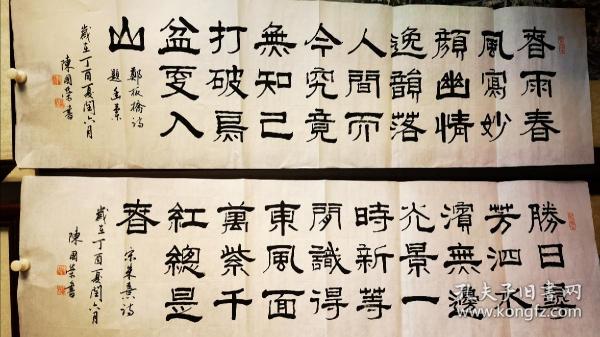 春雨春
風寫妙
顏幽情
逸韻落
人間而
今究竟
無知己
打破烏
盆更入
山
鄭板橋詩
題畫蘭
歲在丁酉夏閏六月
陳國榮書
勝日尋
芳泗水
濱無邊
光景一
時新等
閒識得
東風面
萬紫千
紅總是
春
宋朱熹詩
歲在丁酉夏閏六月
陳國榮書
孔夫子旧书网
www.kongfz.com